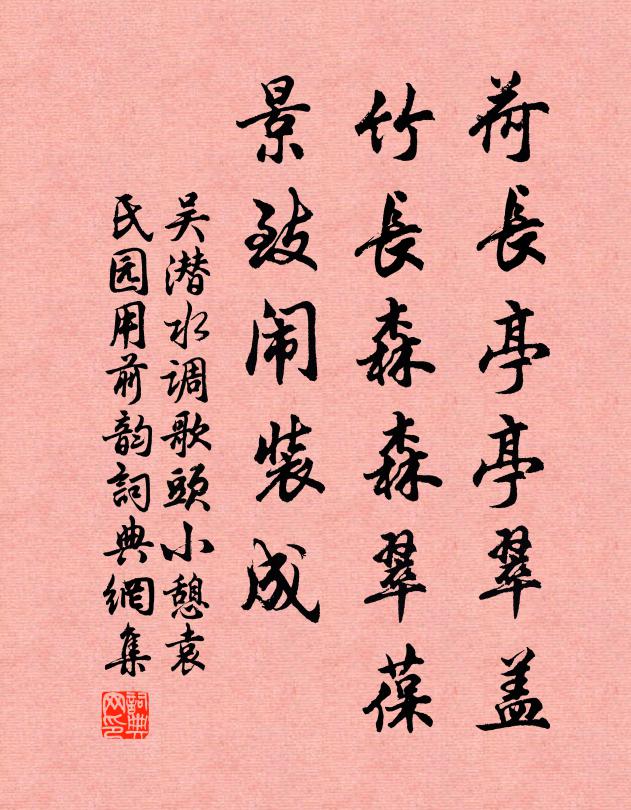 荷長亭亭翠盖
竹長森森翠葆
景致闹装成
吴潜水调歌頭小憩袁
氏园用前韵詞典網集
詞典网印